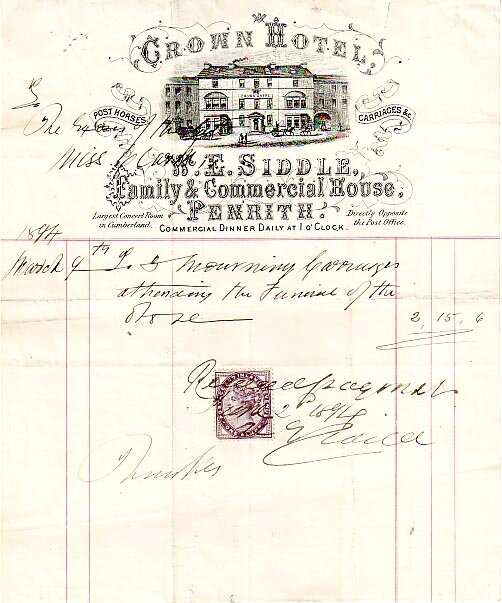 CROWN HOTEL,
CROWN HOTEL
POST HORSES
CARRIAGES &c.
To
The
Miss
W. E. SIDDLE,
Family & Commercial House,
PENRITH.
Largest Concert Room in Cumberland.
Directly Opposite the Post Office.
COMMERCIAL DINNER DAILY AT 1 O'CLOCK.
1894
March 9th To 3 Mourning Carriages
attending the Funeral of the
above 2 . 15 . 6
Received payment
1894
Siddle
Thanks